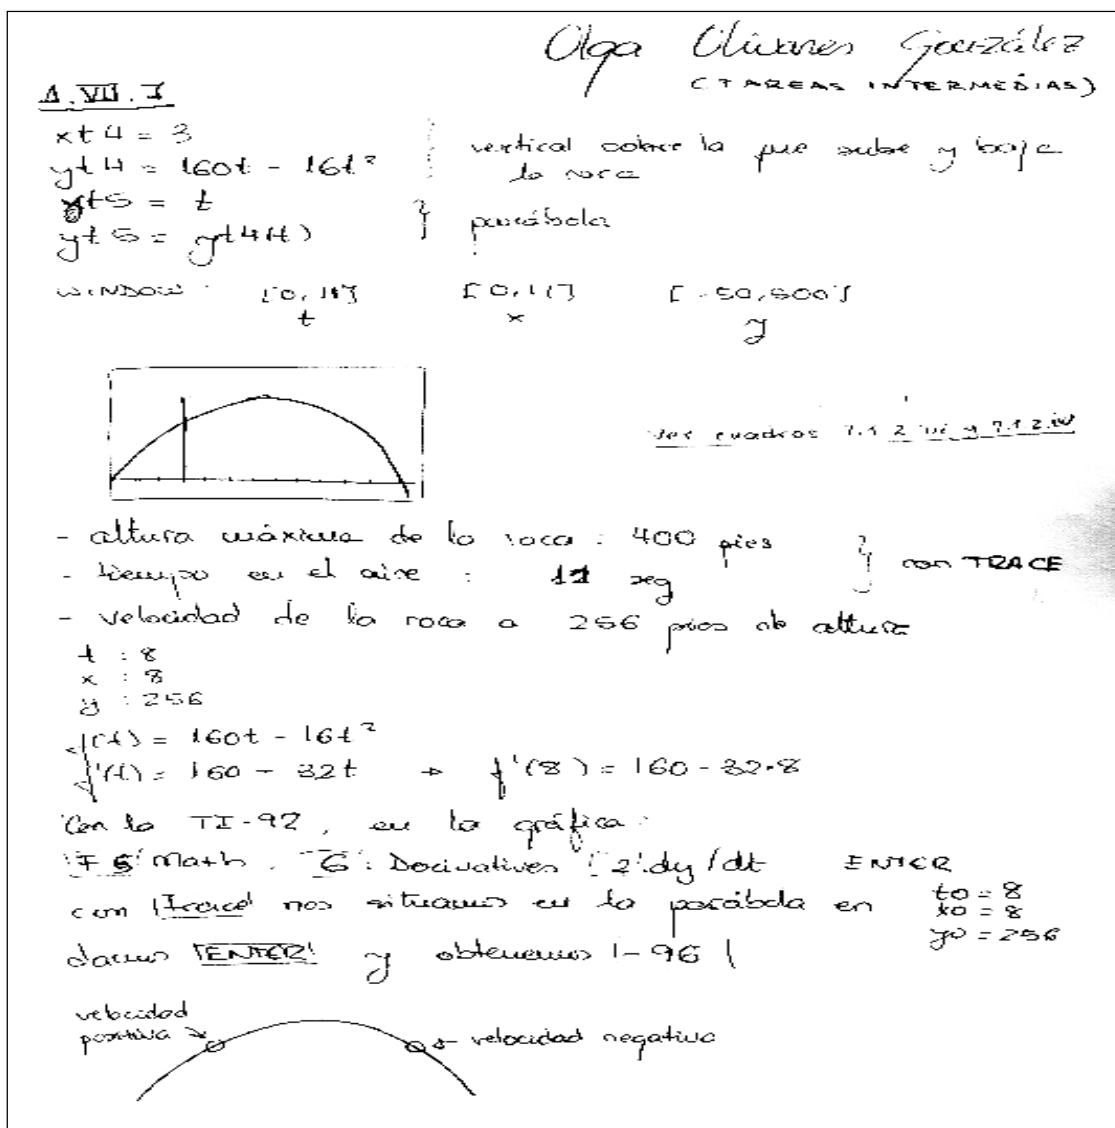 Olga Olivares González
(TAREAS INTERMEDIAS)
A.VII.I
xt4 = 3
yt4 = 160t - 16t²
vertical sobre la que sube y baja
la roca
xt5 = t
yt5 = yt4(t)
} parábola
WINDOW: [0,11] [0,11] [-50,500]
t x y
ver cuadros 7.1.2.iii y 7.1.2.iv
- altura máxima de la roca : 400 pies
- tiempo en el aire : 11 seg
} con TRACE
- velocidad de la roca a 256 pies de altura
t : 8
x : 8
y : 256
f(t) = 160t - 16t²
f'(t) = 160 - 32t → f'(8) = 160 - 32·8
Con la TI-92, en la gráfica:
F5 Math. 6: Derivatives 2:dy/dt ENTER
con Trace nos situamos en la parábola en
t0 = 8
x0 = 8
y0 = 256
damos ENTER y obtenemos |-96|
velocidad
positiva
velocidad negativa